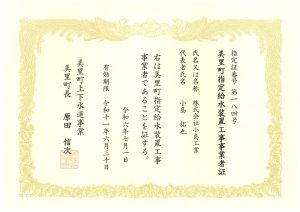 指定証番号 第一八四号
美里町指定給水装置工事事業者証
氏名又は名称 株式会社小島工業
代表者氏名 小島 拓也
右は美里町指定給水装置工事
事業者であることを証する。
令和六年七月一日
有効期限 令和十一年六月三十日
美里町上下水道事業
美里町長 原田 信次